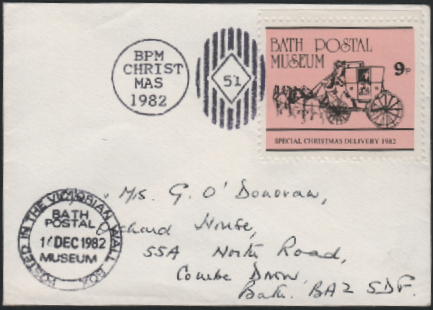 BPM
CHRIST
MAS
1982
51
BATH POSTAL
MUSEUM
9P
SPECIAL CHRISTMAS DELIVERY 1982
POSTED IN THE VICTORIAN WALL BOX
BATH
POSTAL
DEC 1982
MUSEUM
G. O'Donovan,
Orchard House,
55A North Road,
Combe Down,
Bath. BA2 5DF.